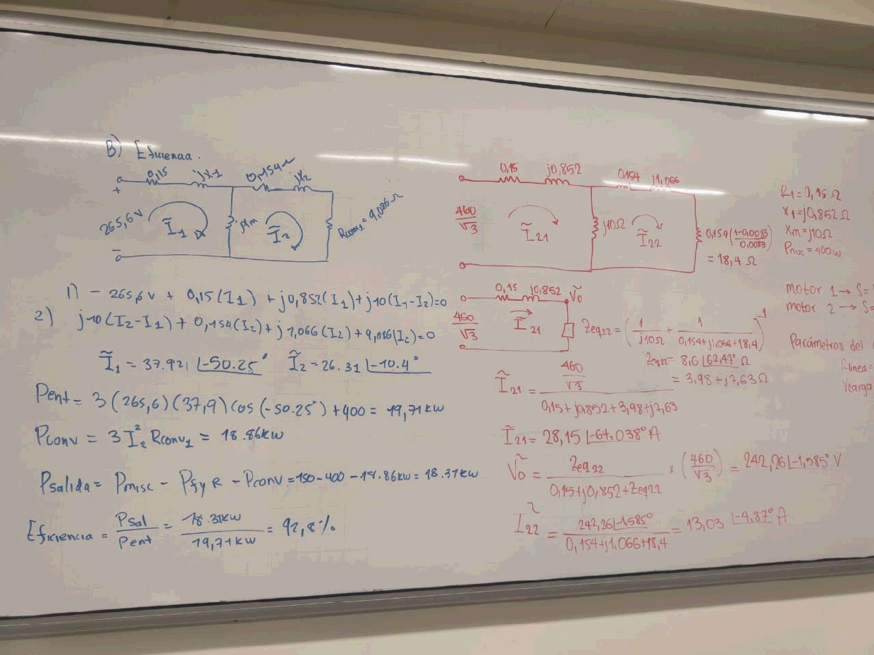 B) Eficiencia.
0,15 jX1 0,154Ω jX2
+
265,6V Ĩ1 jXm Ĩ2 Rconv1 = 9,086Ω
−
1) − 265,6 v + 0,15(I1) + j0,852(I1) + j10(I1-I2)=0
2) j10(I2-I1) + 0,154(I2) + j1,066(I2) + 9,086(I2)=0
Ĩ1 = 37.921 ∠-50.25° Ĩ2 = 26.31 ∠-10.4°
Pent = 3(265,6)(37,9) cos(-50.25°) + 400 = 19,71 kW
Pconv = 3 I2² Rconv1 = 18.86kW
Psalida = Pmisc - PfyR - Pconv = 150 - 400 - 18.86kW = 18.31kW
Eficiencia = Psal/Pent = 18.31kW/19,71kW = 92,8%
0,15 j0,852 0,154 j1,066
460/√3 Ĩ21 j10Ω Ĩ22 0,154(1-0,0083/0,0083)
= 18,4 Ω
0,15 j0,852 Ṽo
460/√3 Ĩ21 Zeq22 = (1/j10Ω + 1/0,154+j1,066+18,4)⁻¹
Zeq22 = 8,6 ∠62,47° Ω
= 3,98 + j7,63 Ω
Ĩ21 = 460/√3 / 0,15+j0,852+3,98+j7,63
Ĩ21 = 28,15 ∠-64,038° A
Ṽo = Zeq22/0,15+j0,852+Zeq22 × (460/√3) = 242,26 ∠-1,585° V
Ĩ22 = 242,26 ∠-1.585°/0,154+j1.066+18,4 = 13,03 ∠-4,87° A
R1 = 0,15 Ω
X1 = j0,852 Ω
Xm = j10Ω
Pmec = 400 w
Motor 1 → S=
motor 2 → S=
Parámetros del
Rlinea =
Vcarga